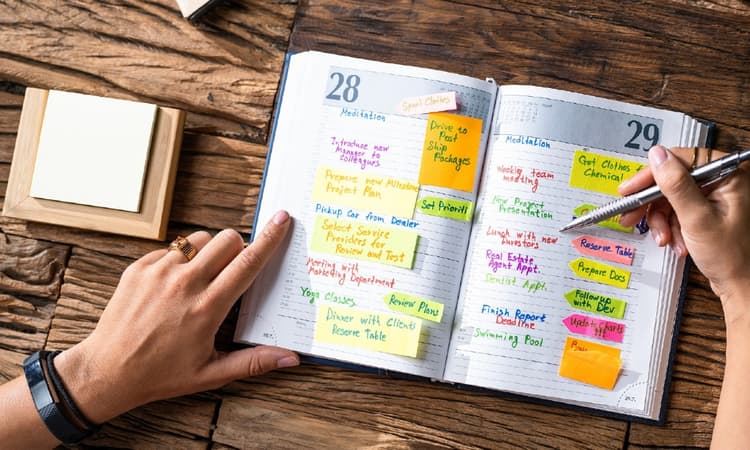 28
Sport Clothes
Meditation
Drive to
Post
Ship
Packages
Introduce new
Manager to
Colleagues
Prepare new Milestone
Project Plan
Set Priority
Pickup Car from Dealer
Select Service
Providers for
Review and Test
Meeting with
Marketing Department
Yoga Classes
Review Plans
Dinner with Clients
Reserve Table
29
Meditation
Get Clothes to
Chemical
Weekly team
meeting
New Project
Presentation
Lunch with new
Investors
Reserve Table
Real Estate
Agent Appt.
Prepare Docs
Dentist Appt.
Followup
with Dev
Finish Report
Deadline
Update Charts
Swimming Pool